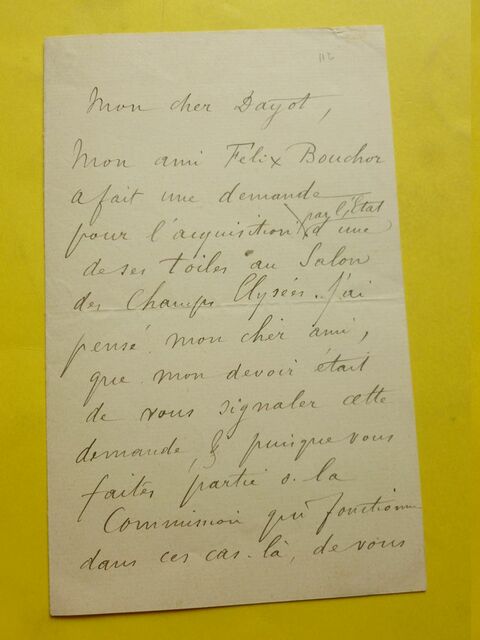 112
Mon cher Dayot,
Mon ami Félix Bouchor
a fait une demande
par l'État
pour l'acquisition d'une
de ses toiles au Salon
des Champs Elysées. J'ai
pensé, mon cher ami,
que mon devoir était
de vous signaler cette
demande, & puisque vous
faites partie de la
Commission qui fonctionne
dans ces cas-là, de vous